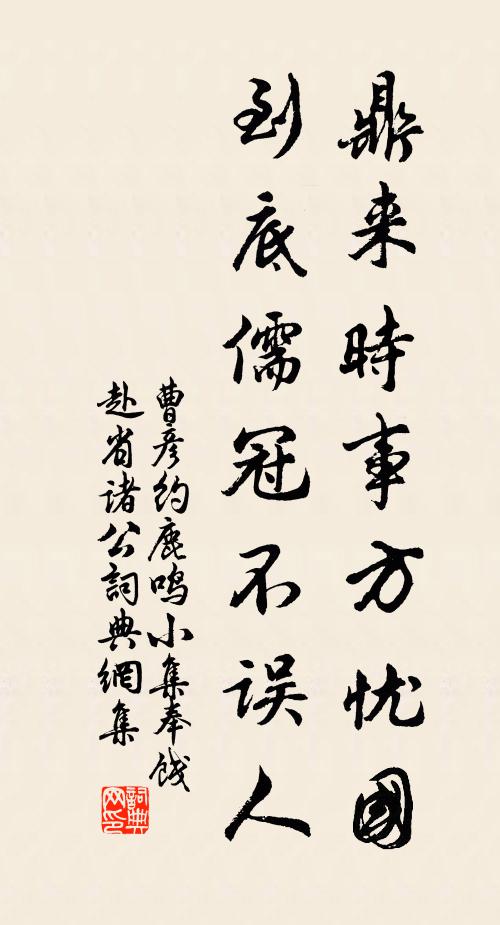 鼎来時事方忧國
到底儒冠不误人
曹彦约鹿鸣小集奉饯
赴省诸公詞典網集
詞典網印